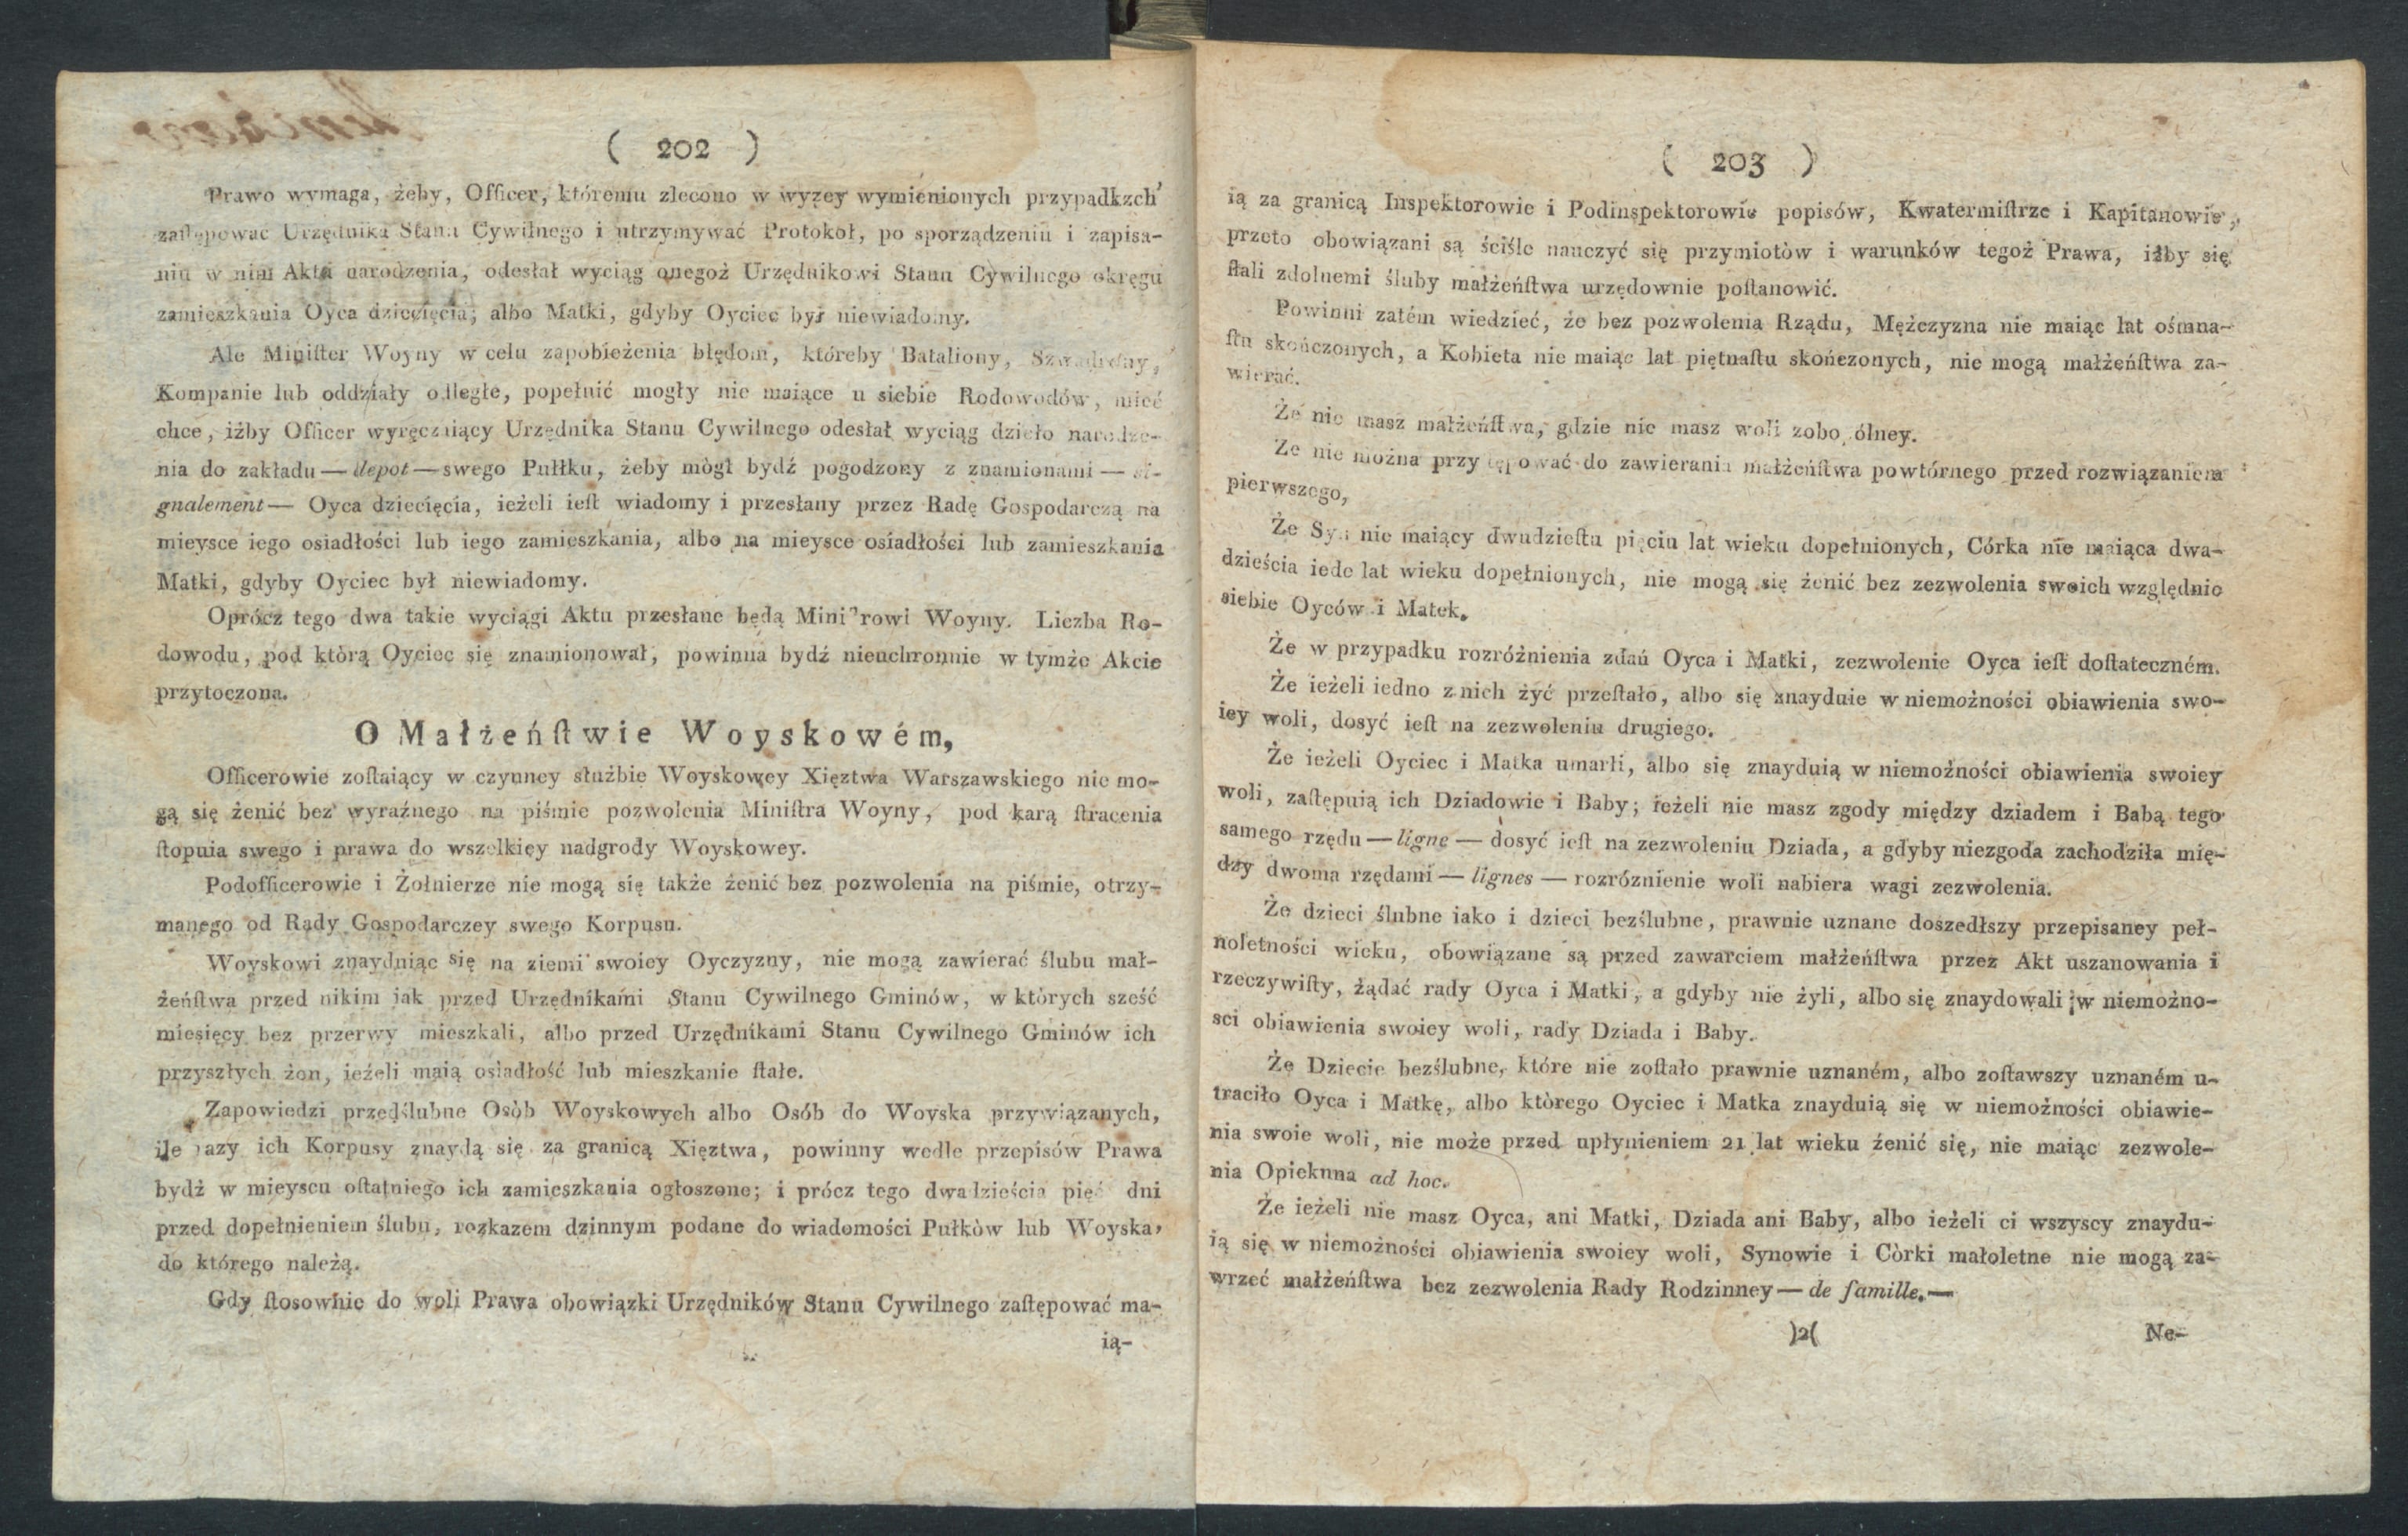 ( 202 )
Prawo wymaga, żeby, Officer, któremu zlecono w wyzey wymienionych przypadkzch
zaſtępować Urzędnika Stanu Cywilnego i utrzymywać Protokoł, po sporządzeniu i zapisa-
niu w nim Akta narodzenia, odesłał wyciąg onegoż Urzędnikowi Stanu Cywilnego okręgu
zamieszkania Oyca dziecięcia; albo Matki, gdyby Oyciec był niewiadomy.
Ale Miniſter Woyny w celu zapobieżenia błędom, któreby Bataliony, Szwadrony,
Kompanie lub oddziały odległe, popełnić mogły nie maiące u siebie Rodowodów, mieć
chce, iżby Officer wyręczaiący Urzędnika Stanu Cywilnego odesłał wyciąg dzieło narodze-
nia do zakładu — depot — swego Pułłku, żeby mògł bydź pogodzony z znamionami — si-
gnalement — Oyca dziecięcia, ieżeli ieſt wiadomy i przesłany przez Radę Gospodarczą na
mieysce iego osiadłości lub iego zamieszkania, albo na mieysce osiadłości lub zamieszkania
Matki, gdyby Oyciec był niewiadomy.
Oprócz tego dwa takie wyciągi Aktu przesłane będą Mini rowi Woyny. Liczba Ro-
dowodu, pod którą Oyciec się znamionował, powinna bydź nieuchronnie w tymże Akcie
przytoczona.
O Małżeńſtwie Woyskowém,
Officerowie zoſtaiący w czynney służbie Woyskowey Xięztwa Warszawskiego nie mo-
gą się żenić bez wyraźnego na piśmie pozwolenia Miniſtra Woyny, pod karą ſtracenia
ſtopnia swego i prawa do wszelkiey nadgrody Woyskowey.
Podofficerowie i Żołnierze nie mogą się także żenić bez pozwolenia na piśmie, otrzy-
manego od Rady Gospodarczey swego Korpusu.
Woyskowi znayduiąc się na ziemi swoiey Oyczyzny, nie mogą zawierać ślubu mał-
żeńſtwa przed nikim iak przed Urzędnikami Stanu Cywilnego Gminów, w których sześć
miesięcy bez przerwy mieszkali, albo przed Urzędnikami Stanu Cywilnego Gminów ich
przyszłych żon, ieżeli maią osiadłość lub mieszkanie ſtałe.
Zapowiedzi przedślubne Osòb Woyskowych albo Osób do Woyska przywiązanych,
ile razy ich Korpusy znaydą się za granicą Xięztwa, powinny wedle przepisów Prawa
bydż w mieyscu oſtatniego ich zamieszkania ogłoszone; i prócz tego dwadzieścia pięć dni
przed dopełnieniem ślubu, rozkazem dzinnym podane do wiadomości Pułkòw lub Woyska,
do którego należą.
Gdy ſtosownie do woli Prawa obowiązki Urzędników Stanu Cywilnego zaſtępować ma-
ią-
( 203 )
ią za granicą Inspektorowie i Podinspektorowie popisów, Kwatermiſtrze i Kapitanowie,
przeto obowiązani są ściśle nauczyć się przymiotòw i warunków tegoż Prawa, iżby się
ſtali zdolnemi śluby małżeńſtwa urzędownie poſtanowić.
Powinni zatém wiedzieć, że bez pozwolenia Rządu, Mężczyzna nie maiąc lat ośmna-
ſtu skończonych, a Kobieta nie maiąc lat piętnaſtu skończonych, nie mogą małżeńſtwa za-
wierać.
Że nie masz małżeńſtwa, gdzie nie masz woli zobo ólney.
Że nie można przyſtępować do zawierania małżeńſtwa powtórnego przed rozwiązaniem
pierwszego,
Że Syn nie maiący dwudzieſtu pięciu lat wieku dopełnionych, Córka nie maiąca dwa-
dzieścia iede lat wieku dopełnionych, nie mogą się żenić bez zezwolenia swoich względnie
siebie Oyców i Matek.
Że w przypadku rozróżnienia zdań Oyca i Matki, zezwolenie Oyca ieſt doſtateczném.
Że ieżeli iedno z nich żyć przeſtało, albo się znayduie w niemożności obiawienia swo-
iey woli, dosyć ieſt na zezwoleniu drugiego.
Że ieżeli Oyciec i Matka umarli, albo się znayduią w niemożności obiawienia swoiey
woli, zaſtępuią ich Dziadowie i Baby; ieżeli nie masz zgody między dziadem i Babą tego
samego rzędu — ligne — dosyć ieſt na zezwoleniu Dziada, a gdyby niezgoda zachodziła mię-
dzy dwoma rzędami — lignes — rozróznienie woli nabiera wagi zezwolenia.
Że dzieci ślubne iako i dzieci bezślubne, prawnie uznane doszedłszy przepisaney peł-
noletności wieku, obowiązane są przed zawarciem małżeńſtwa przez Akt uszanowania i
rzeczywiſty, żądać rady Oyca i Matki, a gdyby nie żyli, albo się znaydowali w niemożno-
sci obiawienia swoiey woli, rady Dziada i Baby.
Że Dziecie bezślubne, które nie zoſtało prawnie uznaném, albo zoſtawszy uznaném u-
traciło Oyca i Matkę, albo którego Oyciec i Matka znayduią się w niemożności obiawie-
nia swoie woli, nie może przed upłynieniem 21 lat wieku żenić się, nie maiąc zezwole-
nia Opiekuna ad hoc.
Że ieżeli nie masz Oyca, ani Matki, Dziada ani Baby, albo ieżeli ci wszyscy znaydu-
ią się w niemożności obiawienia swoiey woli, Synowie i Còrki małoletne nie mogą za-
wrzeć małżeńſtwa bez zezwolenia Rady Rodzinney — de famille. —
)2( Ne-